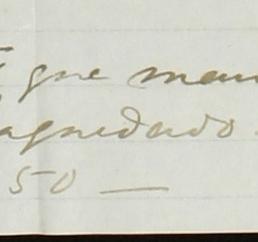 que man
aguedado
50 —